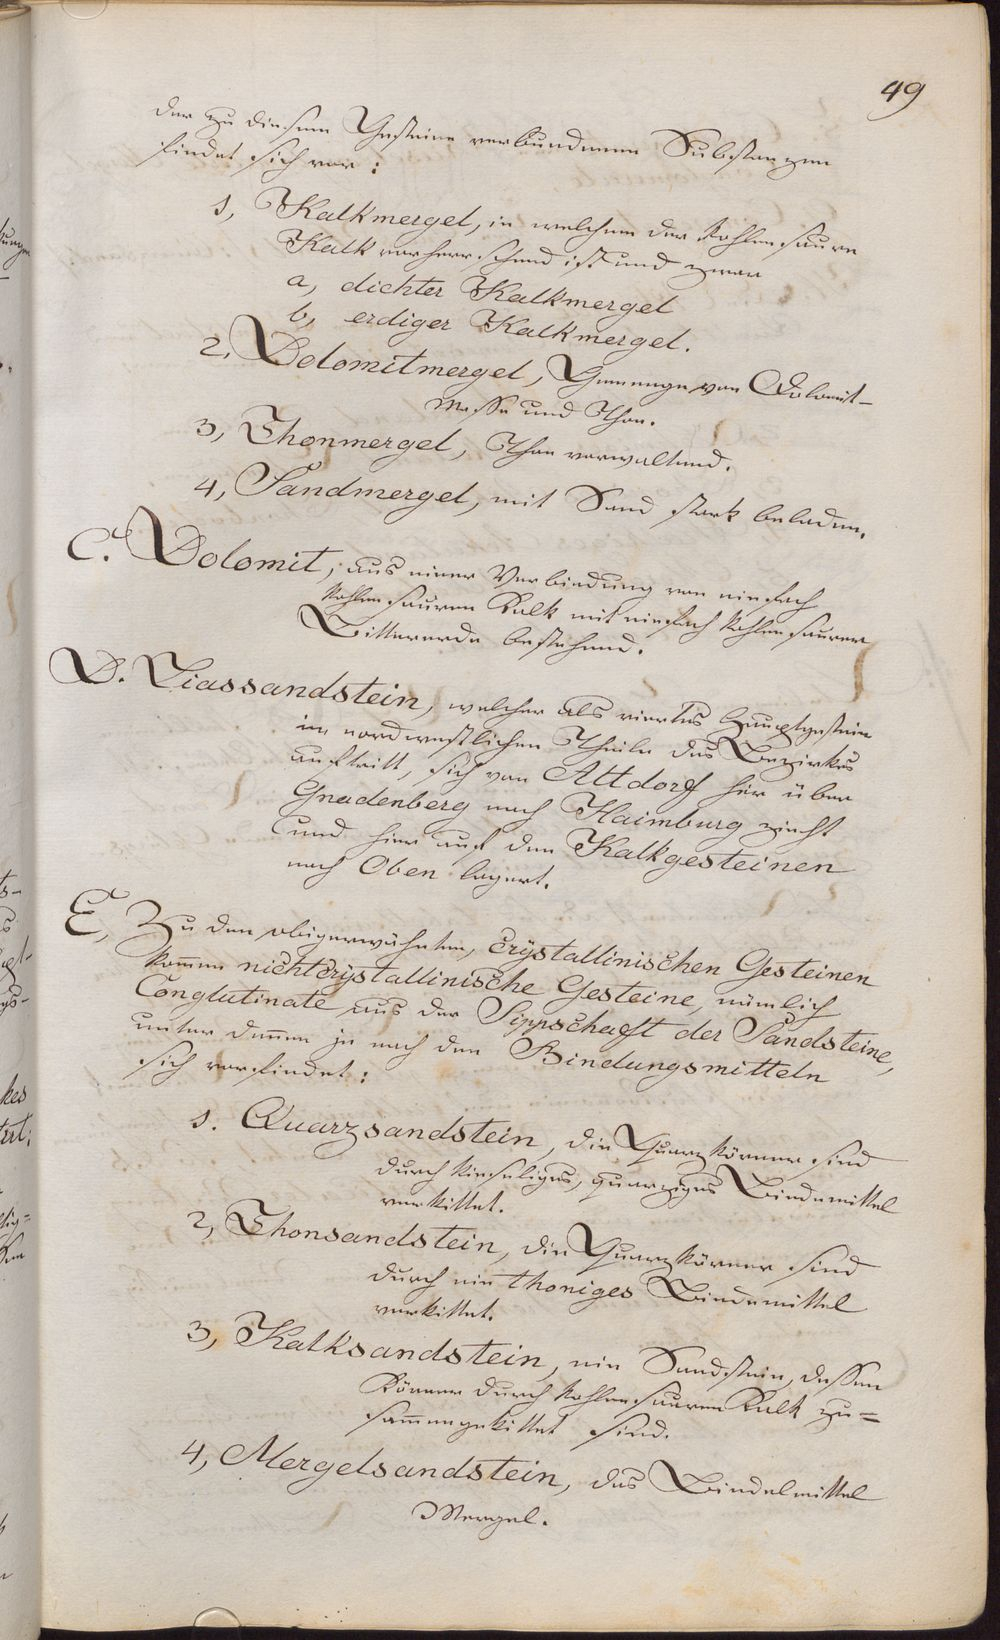 49
der zu diesem Gesteine verbundenen Substanzen
findet sich vor:
1, Kalkmergel, in welchem der kohlensaure
Kalk vorherrschend ist und zwar
a, dichter Kalkmergel
b, erdiger Kalkmergel.
2, Dolomitmergel, Gemenge von Dolomit-
Masse und Thon.
3, Thonmergel, Thon vorwaltend.
4, Sandmergel, mit Sand stark beladen.
C. Dolomit, aus einer Verbindung von einfach
kohlensauren Kalk mit einfach kohlensaurer
Bittererde bestehend.
D. Liassandstein, welcher als viertes Hauptgestein
im nordwestlichen Theile des Bezirkes
auftritt, sich von Altdorf her über
Gnadenberg nach Haimburg zieht
und hier auf den Kalkgesteinen
nach Oben lagert.
E, Zu den obigerwähnten, crÿstallinischen Gesteinen
kom̄en nichtcrÿstallinische Gesteine, nämlich
Conglutinate aus der Sippschaft der Sandsteine,
unter denen je nach den Bindungsmitteln
sich vorfindet:
1. Quarzsandstein, die Quarzkörner sind
durch kieseliges, quarziges Bindemittel
verkittet.
2, Thonsandstein, die Quarzkörner sind
durch ein thoniges Bindemittel
verkittet.
3, Kalksandstein, ein Sandstein, dessen
Körner durch kohlensauren Kalk zu=
sam̄engekittet sind.
4, Mergelsandstein, das Bindelmittel
Mergel.